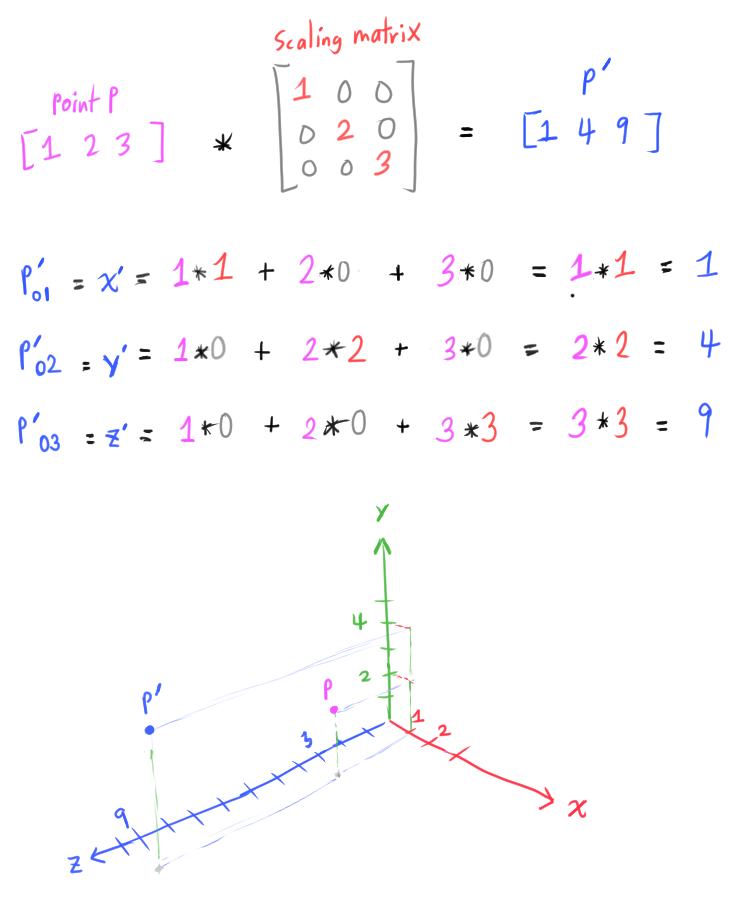 scaling matrix
point P
P'
[1 2 3] * [1 0 0
0 2 0
0 0 3] = [1 4 9]
P'01 = x' = 1*1 + 2*0 + 3*0 = 1*1 = 1
P'02 = y' = 1*0 + 2*2 + 3*0 = 2*2 = 4
P'03 = z' = 1*0 + 2*0 + 3*3 = 3*3 = 9
Y
4
2
P
P'
1
2
3
9
Z
X